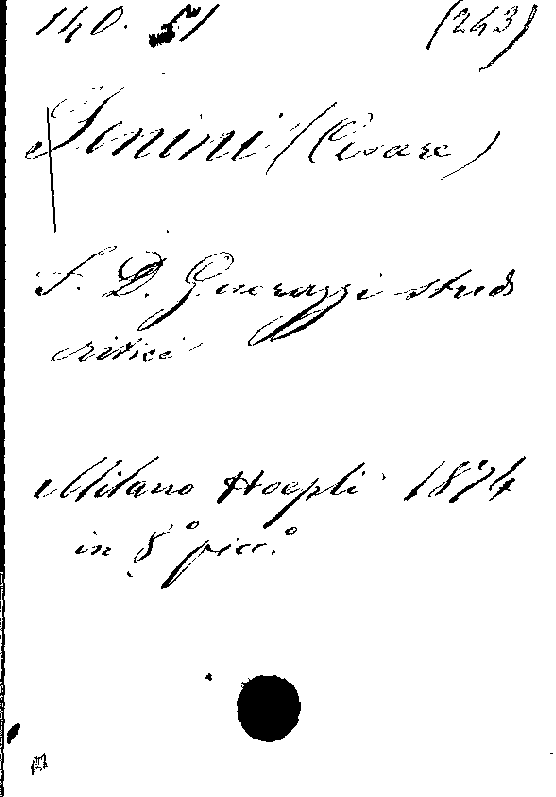 140. 51 (263)
Fenini (Cesare)
F. D. Guerazzi studi
critici
Milano Hoepli 1874
in 8° picc.°